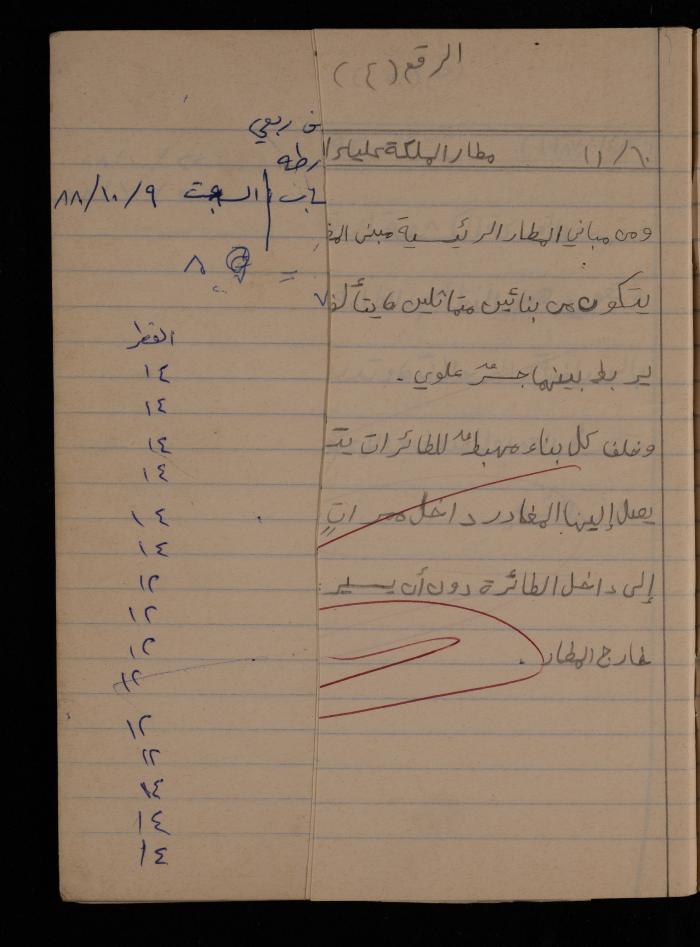 الرقع (٤)
١/٦٠ مطار الملكة علياء ا
ومن مباني المطار الرئيسية مبنى المغ
يتكون من بنائين متماثلين، يتألف
يربط بينهما جسرٌ علوي.
وخلف كل بناء مهبطٌ للطائرات يتـ
يصل إليها المغادر داخل ممراتٍ
إلى داخل الطائرة دون أن يسير
خارج المطار.
ن ربعي
رطه
ـاب السبت ٨٨/١٠/٩
= ٨
القطر
١٤
١٤
١٤
١٤
١٤
١٤
١٢
١٢
١٢
١٢
١٢
١٢
١٤
١٤
١٤